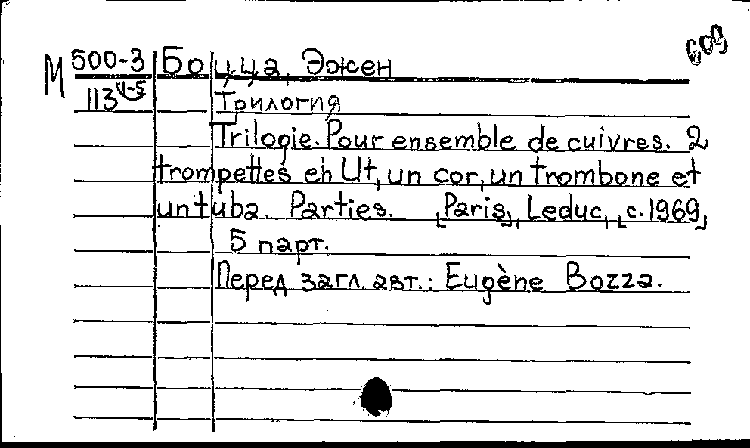 609
М 500-3 Боцца, Эжен
113 4-5 Трилогия
Trilogie. Pour ensemble de cuivres. 2
trompettes en Ut, un cor, un trombone et
un tuba. Parties. [Paris], Leduc, [c. 1969]
5 парт.
Перед загл. авт.: Eugène Bozza.